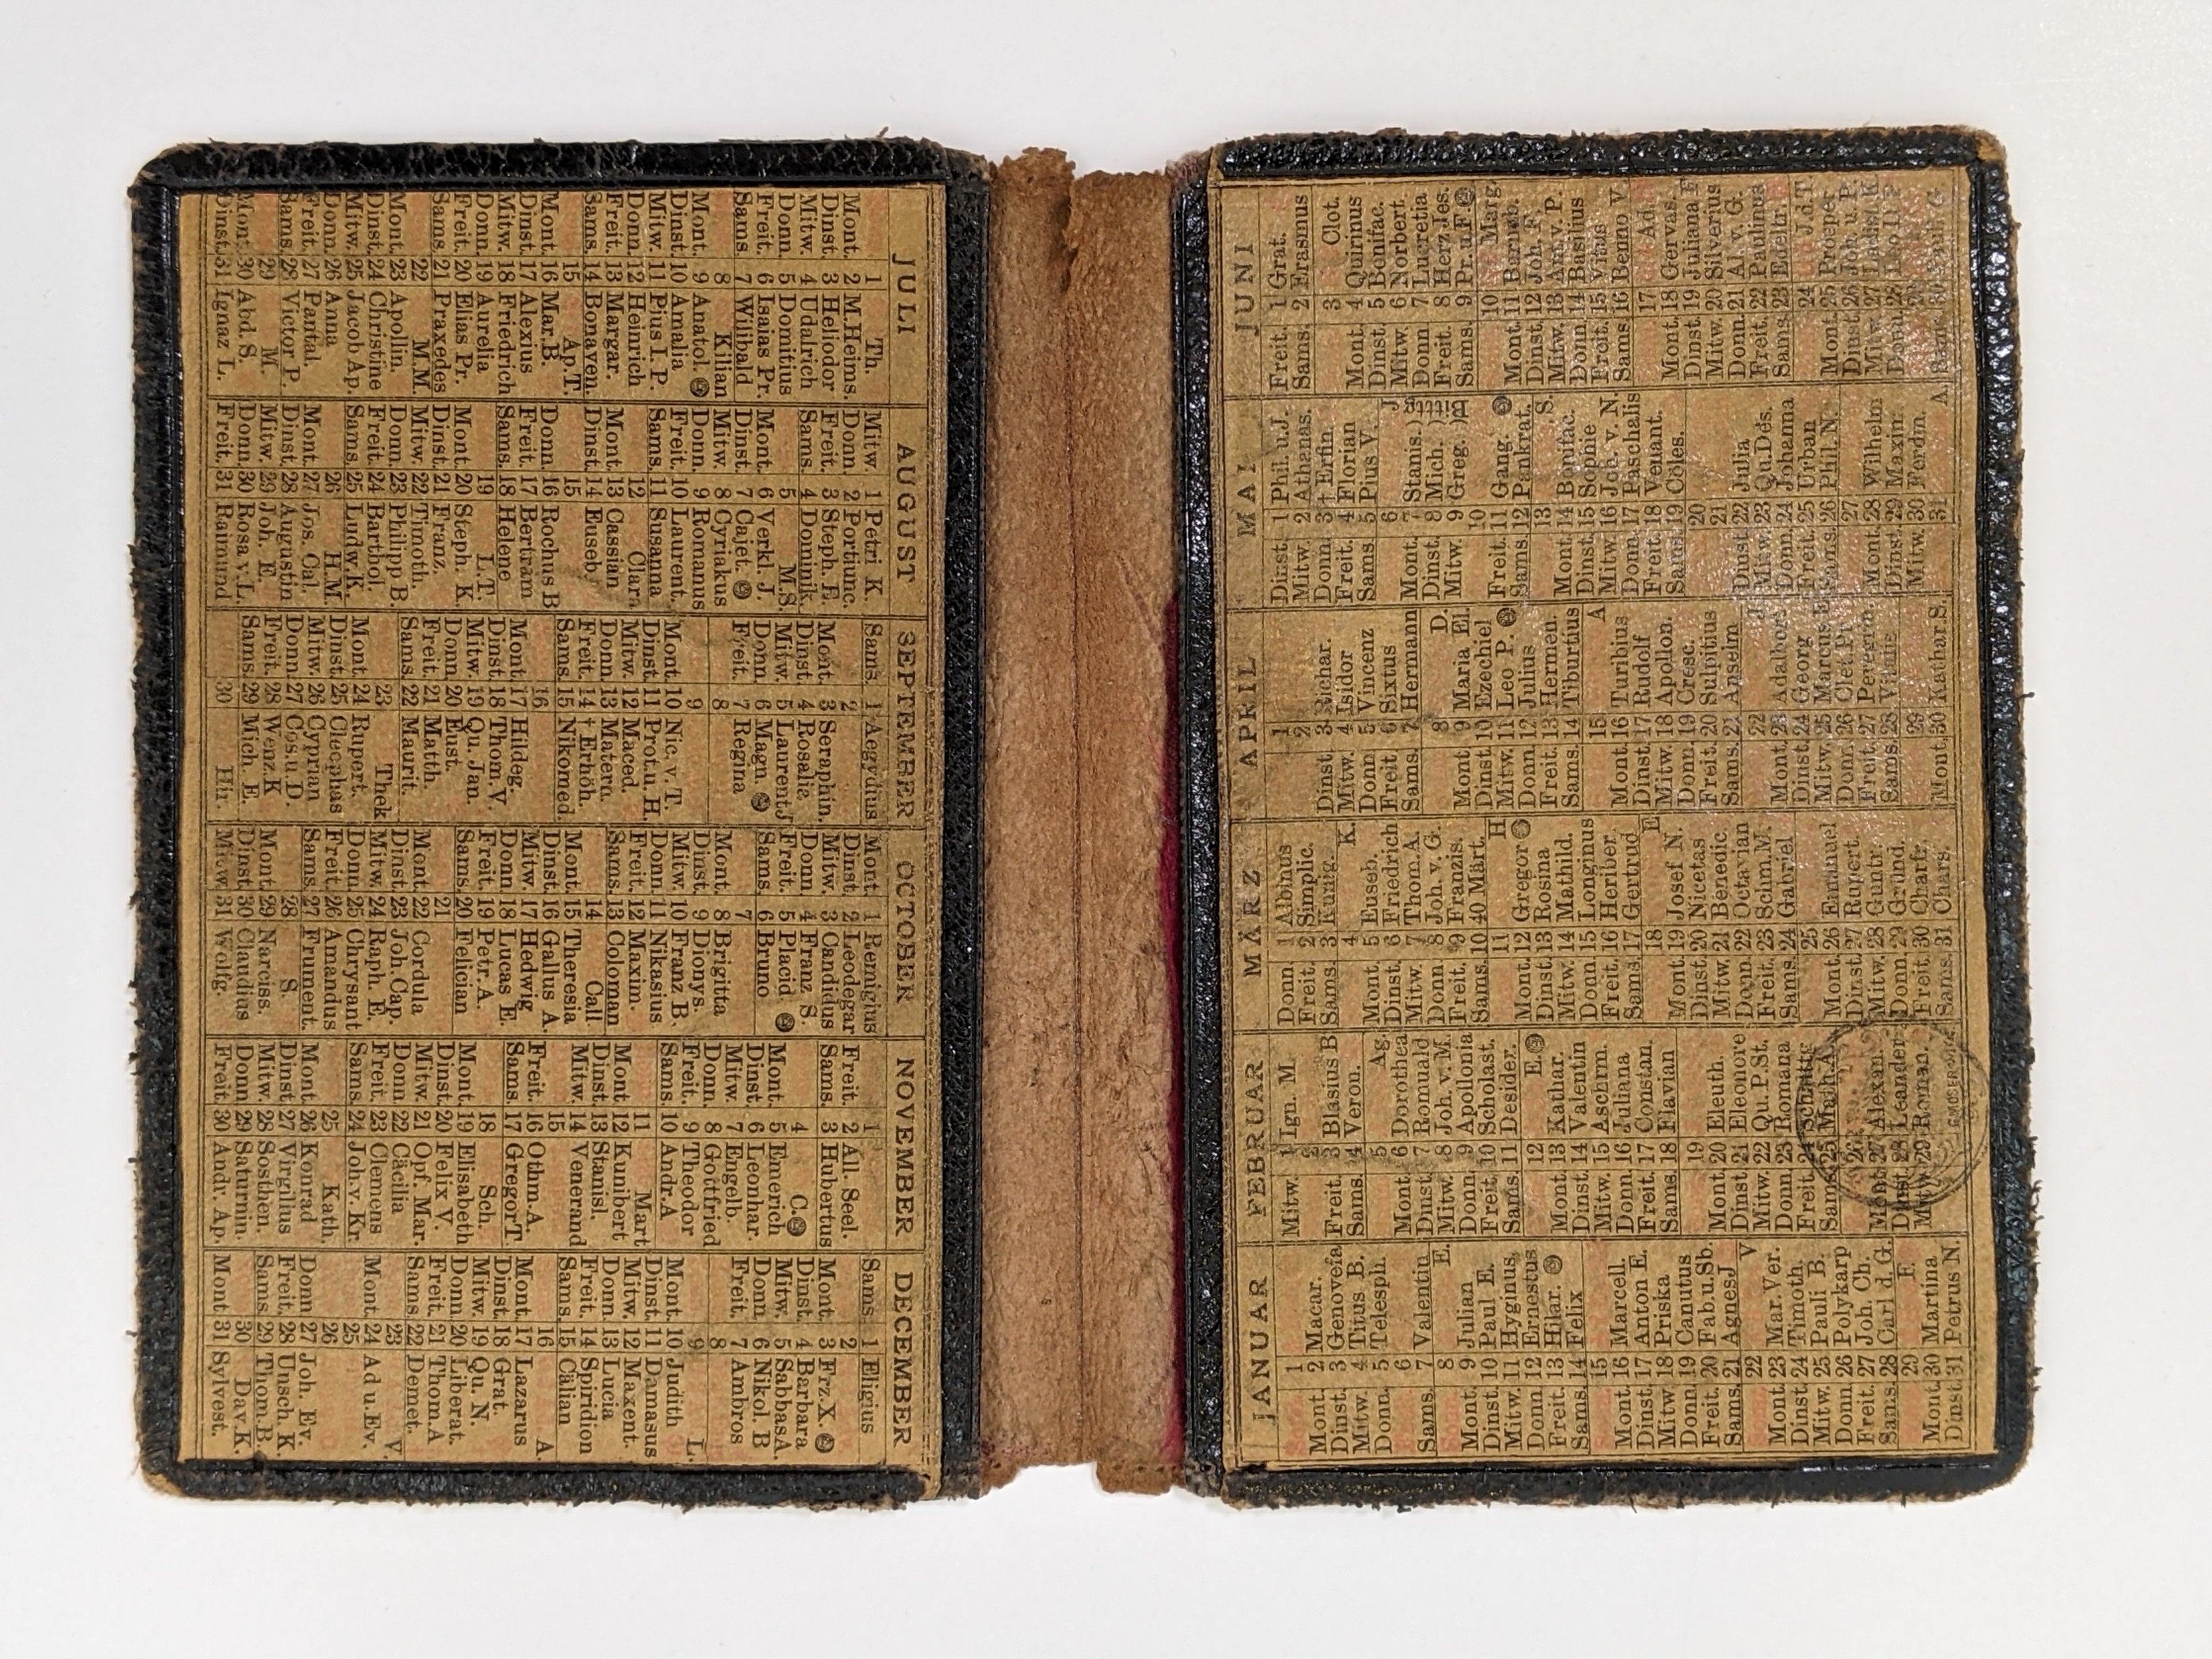 JANUAR
1
Mont. 2 Macar.
Dinst. 3 Genovefa
Mitw. 4 Titus B.
Donn. 5 Telesph.
6
Sams. 7 Valentin
8 E.
Mont. 9 Julian
Dinst. 10 Paul E.
Mitw. 11 Hyginus
Donn. 12 Ernestus
Freit. 13 Hilar.
Sams. 14 Felix
15
Mont. 16 Marcell.
Dinst. 17 Anton E.
Mitw. 18 Priska
Donn. 19 Canutus
Freit. 20 Fab.u.Sb.
Sams. 21 Agnes J
22 V
Mont. 23 Mar. Ver.
Dinst. 24 Timoth.
Mitw. 25 Pauli B.
Donn. 26 Polykarp
Freit. 27 Joh. Ch.
Sams. 28 Carl d. G.
29 F.
Mont. 30 Martina
Dinst. 31 Petrus N.
FEBRUAR
Mitw. 1 Ign. M
2
Freit. 3 Blasius B
Sams. 4 Veron.
5 Ag.
Mont. 6 Dorothea
Dinst. 7 Romuald
Mitw. 8 Joh. v. M.
Donn. 9 Apollonia
Freit. 10 Scholast.
Sams. 11 Desider.
12 E.
Mont. 13 Kathar.
Dinst. 14 Valentin
Mitw. 15 Aschrm.
Donn. 16 Juliana
Freit. 17 Constan.
Sams. 18 Flavian
19
Mont. 20 Eleuth.
Dinst. 21 Eleonore
Mitw. 22 Qu. P. St.
Donn. 23 Romana
Freit. 24 Schalttg
Sams. 25 Math. A.
26
Mont. 27 Alexan.
Dinst. 28 Leander
Mitw. 29 Roman.
MÄRZ
Donn 1 Albinus
Freit. 2 Simplic.
Sams. 3 Kunig.
4 K.
Mont. 5 Euseb.
Dinst. 6 Friedrich
Mitw. 7 Thom. A.
Donn 8 Joh. v. G.
Freit. 9 Franzis.
Sams. 10 40 Märt.
11 H
Mont. 12 Gregor
Dinst. 13 Rosina
Mitw. 14 Mathild.
Donn. 15 Longinus
Freit. 16 Heriber.
Sams. 17 Gertrud
18 E
Mont. 19 Josef N.
Dinst. 20 Nicetas
Mitw. 21 Benedic
Donn. 22 Octavian
Freit. 23 Schm. M.
Sams. 24 Gabriel
25
Mont. 26 Emanuel
Dinst. 27 Rupert.
Mitw. 28 Guntr.
Donn. 29 Gründ.
Freit. 30 Charfr.
Sams. 31 Chars.
APRIL
1
2
Dinst 3 Richar.
Mitw. 4 Isidor
Donn 5 Vincenz
Freit 6 Sixtus
Sams. 7 Hermann
8 D.
Mont 9 Maria El.
Dinst. 10 Ezechiel
Mitw. 11 Leo P.
Donn. 12 Julius
Freit. 13 Hermen.
Sams. 14 Tiburtius
15 A
Mont. 16 Turibius
Dinst. 17 Rudolf
Mitw. 18 Apollon.
Donn. 19 Cresc.
Freit. 20 Sulpitius
Sams. 21 Anselm
22 J
Mont. 23 Adalbert
Dinst. 24 Georg
Mitw. 25 Marcus E
Donn. 26 Clet. P.
Freit. 27 Peregrin.
Sams. 28 Vitalis
29
Mont. 30 Kathar S.
MAI
Dinst. 1 Phil. u. J.
Mitw. 2 Athanas.
Donn. 3 † Erfin
Freit. 4 Florian
Sams. 5 Pius V.
6 J
Mont. 7 Stanis.
Dinst. 8 Mich.
Mitw. 9 Greg.
Bitttg
10
Freit. 11 Gang.
Sams. 12 Pankrat.
13 S.
Mont. 14 Bonifac.
Dinst. 15 Sophie
Mitw. 16 Joh. v. N.
Donn. 17 Paschalis
Freit. 18 Venant.
Sams. 19 Cöles.
20
21
Dinst. 22 Julia
Mitw. 23 Qu. Des.
Donn. 24 Johanna
Freit. 25 Urban
Sams. 26 Phil. N.
27
Mont. 28 Wilhelm
Dinst. 29 Maxim
Mitw. 30 Ferdin.
31
JUNI
Freit. 1 Grat.
Sams. 2 Erasmus
3 Clot.
Mont. 4 Quirinus
Dinst. 5 Bonifac.
Mitw. 6 Norbert
Donn 7 Lucretia
Freit. 8 Herz Jes.
Sams. 9 Pr. u. F
10 Marg
Mont. 11 Barnab.
Dinst. 12 Joh. F.
Mitw. 13 Ant. v. P.
Donn. 14 Basilius
Freit. 15 Vitus
Sams 16 Benno V
17 Ad.
Mont. 18 Gervas.
Dinst. 19 Juliana F
Mitw. 20 Silverius
Donn. 21 Al. v. G.
Freit. 22 Paulinus
Sams. 23 Edeltr
24 J. d. T.
Mont. 25 Prosper
Dinst. 26 Joh. u. P.
Mitw. 27 Ladisl. K
Donn. 28 Leo II. P
29
Sams. 30 Paul. G.
JULI
1 Th.
Mont. 2 M. Heims.
Dinst. 3 Heliodor
Mitw. 4 Udalrich
Donn. 5 Domitius
Freit. 6 Isaias Pr.
Sams. 7 Wilibald
8 Kilian
Mont. 9 Anatol.
Dinst. 10 Amalia
Mitw. 11 Pius I. P.
Donn. 12 Heinrich
Freit. 13 Margar.
Sams. 14 Bonaven.
15 Ap. T.
Mont. 16 Mar. B.
Dinst. 17 Alexius
Mitw. 18 Friedrich
Donn. 19 Aurelia
Freit. 20 Elias Pr.
Sams. 21 Praxedes
22 M. M.
Mont. 23 Apollin.
Dinst. 24 Christine
Mitw. 25 Jacob Ap.
Donn. 26 Anna
Freit. 27 Pantal.
Sams. 28 Victor P.
29 M.
Mont. 30 Abd. S.
Dinst. 31 Ignaz L.
AUGUST
Mitw 1 Petri K
Donn. 2 Portiunc.
Freit. 3 Steph. E.
Sams. 4 Dominik.
5 M. S.
Mont. 6 Verkl. J.
Dinst. 7 Cajet.
Mitw. 8 Cyriakus
Donn. 9 Romanus
Freit. 10 Laurent.
Sams. 11 Susanna
12 Clara
Mont. 13 Cassian
Dinst. 14 Euseb.
15
Donn. 16 Rochus B
Freit. 17 Bertram
Sams. 18 Helene
19 L. T.
Mont. 20 Steph. K.
Dinst. 21 Franz.
Mitw. 22 Timoth.
Donn. 23 Philipp B.
Freit. 24 Barthol.
Sams. 25 Ludw. K.
26 H. M.
Mont. 27 Jos. Cal.
Dinst. 28 Augustin
Mitw. 29 Joh. E.
Donn. 30 Rosa v. L.
Freit. 31 Raimund
SEPTEMBER
Sams. 1 Aegydius
2
Mont. 3 Seraphin.
Dinst 4 Rosalie
Mitw. 5 Laurent J
Donn 6 Magn.
Freit. 7 Regina
8
9
Mont. 10 Nic. v. T.
Dinst. 11 Prot. u. H.
Mitw. 12 Maced.
Donn. 13 Matern.
Freit. 14 † Erhöh.
Sams. 15 Nikomed
16
Mont. 17 Hildeg.
Dinst. 18 Thom. V.
Mitw. 19 Qu. Jan.
Donn. 20 Eust.
Freit. 21 Matth.
Sams. 22 Maurit.
23 Thek
Mont. 24 Rupert.
Dinst. 25 Cleophas
Mitw. 26 Cyprian
Donn. 27 Cos. u. D.
Freit. 28 Wenz. K
Sams. 29 Mich. E.
30 Hir.
OCTOBER
Mont. 1 Remigius
Dinst. 2 Leodegar
Mitw. 3 Candidus
Donn. 4 Franz S.
Freit. 5 Placid.
Sams. 6 Bruno
7
Mont. 8 Brigitta
Dinst. 9 Dionys.
Mitw. 10 Franz B.
Donn. 11 Nikasius
Freit. 12 Maxim.
Sams. 13 Coloman
14 Call
Mont. 15 Theresia
Dinst. 16 Gallus A.
Mitw. 17 Hedwig
Donn 18 Lucas E.
Freit. 19 Petr. A.
Sams. 20 Felician
21
Mont. 22 Cordula
Dinst. 23 Joh. Cap.
Mitw. 24 Raph. E.
Donn. 25 Chrysant
Freit. 26 Amandus
Sams. 27 Frument.
28 S.
Mont. 29 Narciss.
Dinst. 30 Claudius
Mitw. 31 Wolfg.
NOVEMBER
1
Freit. 2 All. Seel.
Sams. 3 Hubertus
4 C.
Mont. 5 Emerich
Dinst. 6 Leonhar.
Mitw. 7 Engelb.
Donn. 8 Gottfried
Freit. 9 Theodor
Sams. 10 Andr. A
11 Mart
Mont 12 Kunibert
Dinst 13 Stanisl.
Mitw. 14 Venerand
15
Freit. 16 Othm. A.
Sams. 17 Gregor T.
18 Sch.
Mont. 19 Elisabeth
Dinst. 20 Felix V.
Mitw. 21 Opf. Mar.
Donn. 22 Cäcilia
Freit. 23 Clemens
Sams. 24 Joh. v. Kr
25 Kath.
Mont. 26 Konrad
Dinst 27 Virgilius
Mitw. 28 Sosthen.
Donn 29 Saturnin.
Freit. 30 Andr. Ap.
DECEMBER
Sams 1 Eligius
2
Mont. 3 Frz. X.
Dinst. 4 Barbara
Mitw. 5 Sabbas A.
Donn 6 Nikol. B
Freit. 7 Ambros
8
9 L.
Mont. 10 Judith
Dinst. 11 Damasus
Mitw. 12 Maxent.
Donn. 13 Lucia
Freit. 14 Spiridion
Sams. 15 Cälian
16 A.
Mont. 17 Lazarus
Dinst. 18 Grat.
Mitw. 19 Qu. N.
Donn. 20 Liberat.
Freit. 21 Thom. A
Sams. 22 Demet.
23 V.
Mont. 24 Ad u. Ev.
25
26
Donn 27 Joh. Ev.
Freit. 28 Unsch. K
Sams. 29 Thom. B.
30 Dav. K.
Mont 31 Sylvest.